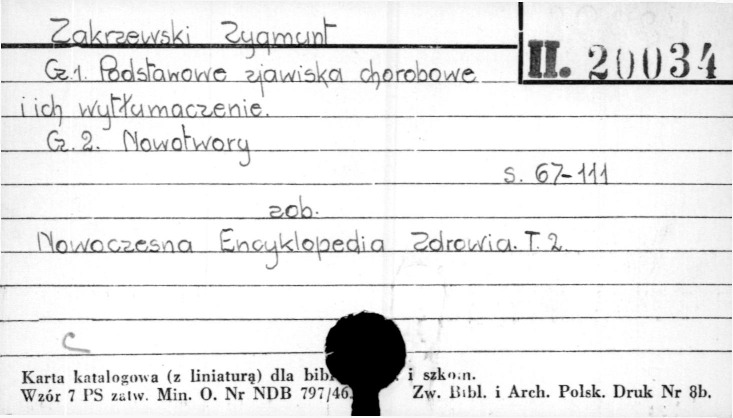 Zakrzewski Zygmunt
II. 20034
Cz.1. Podstawowe zjawiska chorobowe
i ich wytłumaczenie.
Cz. 2. Nowotwory
s. 67-111
zob.
Nowoczesna Encyklopedia Zdrowia. T. 2
C
Karta katalogowa (z liniaturą) dla i szkoln.
Wzór 7 PS zatw. Min. O. Nr NDB 797/46. Zw. Bibl. i Arch. Polsk. Druk Nr 8b.